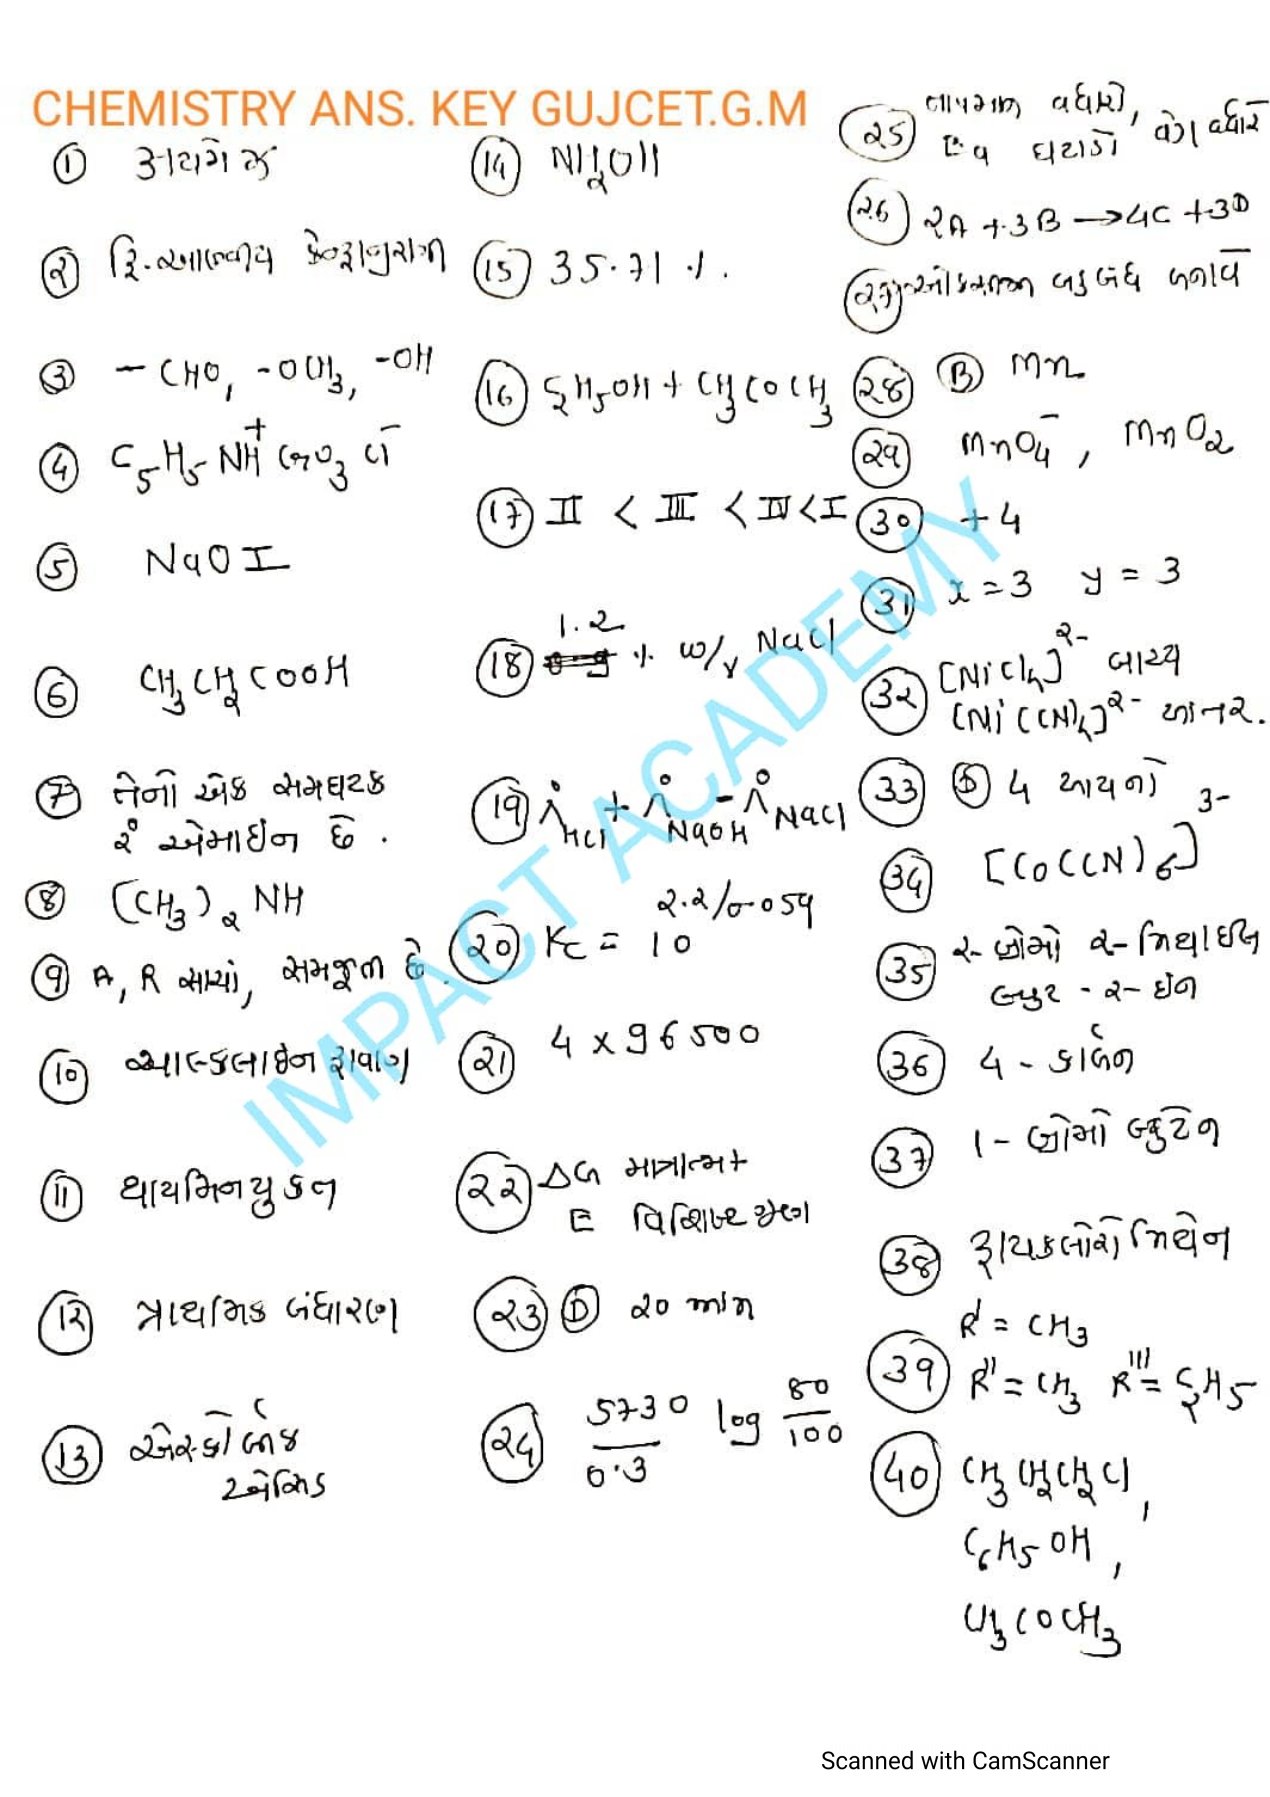 CHEMISTRY ANS. KEY GUJCET.G.M
① 
② કેન્દ્રાનુરાગી
③ – CHO, -OCH₃, -OH
④ C₅H₅NH⁺CrO₃Cl⁻
⑤ NaOI
⑥ CH₃CH₂COOH
⑦ તેનો એક સમઘટક
૨° એમાઈન છે .
⑧ (CH₃)₂NH
⑨ A, R સાચાં, છે.
⑩ આલ્કલાઈન દ્રાવણ
⑪ થાયમિનયુક્ત
⑫ પ્રાથમિક બંધારણ
⑬ એસ્કોર્બિક
એસિડ
⑭ NH₂OH
⑮ 35.71 %.
⑯ C₂H₅OH + CH₃COCH₃
⑰ II < III < IV < I
⑱ 1.2 % w/v NaCl
⑲ λ°HCl + λ°NaOH - λ°NaCl
⑳ Kc = 10^2.2/0.059
㉑ 4 x 96500
㉒ ΔG માત્રાત્મક
E વિશિષ્ટ ગુણ
㉓ Ⓓ ૨૦ ગ્રામ
㉔ 5730/0.3 log 80/100
㉕ તાપમાન વધારો, વેગ વધારે
ઘટાડો
㉖ ૨A + 3B → 4C + 3D
㉗ બનાવે
㉘ Ⓑ Mn
㉙ MnO₄⁻, MnO₂
㉚ +4
㉛ x = 3 y = 3
㉜ [NiCl₄]²⁻ બાહ્ય
[Ni(CN)₄]²⁻ આંતર.
㉝ Ⓓ 4 આયનો
㉞ [Co(CN)₆]³⁻
㉟ ૨-બ્રોમો ૨-મિથાઈલ
બ્યુટ - ૨ - ઈન
㊱ 4 - કાર્બન
㊲ 1 - બ્રોમો બ્યુટેન
㊳ ટ્રાયક્લોરો મિથેન
㊴ R' = CH₃
R'' = CH₃ R''' = C₂H₅
㊵ CH₃CH₂CH₂Cl,
C₆H₅OH,
CH₃COCH₃
IMPACT ACADEMY
Scanned with CamScanner